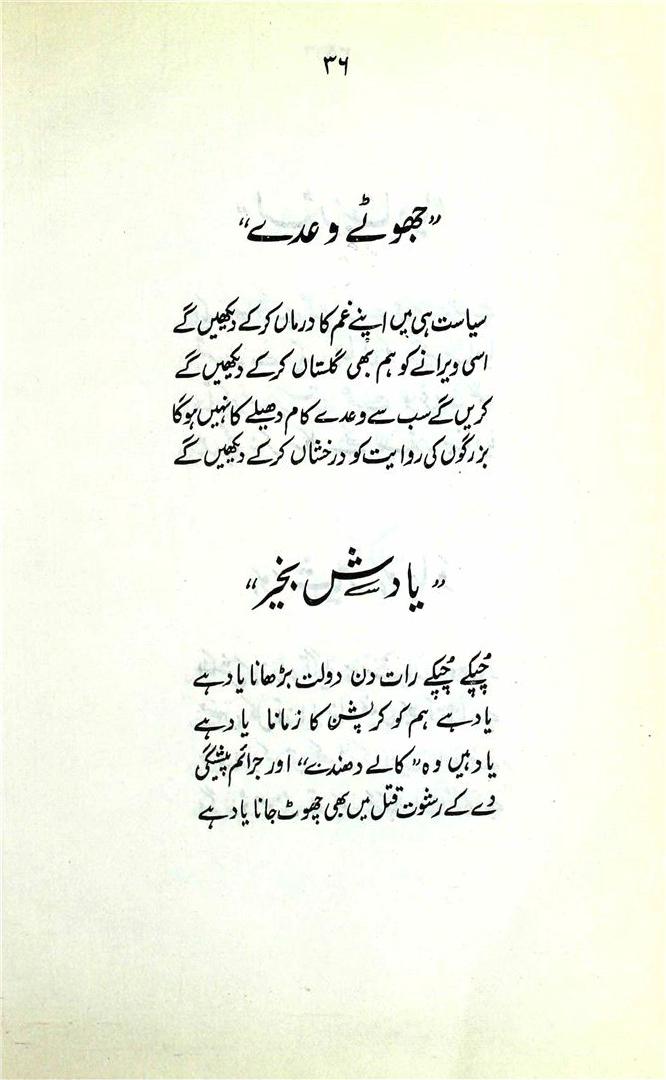 ۳۶
"جھوٹے وعدے"
سیاست ہی میں اپنے غم کا درماں کرکے دیکھیں گے
اسی ویرانے کو ہم بھی گلستاں کرکے دیکھیں گے
کریں گے سب سے وعدے کام دھیلے کا نہیں ہوگا
بزرگوں کی روایت کو درخشاں کرکے دیکھیں گے
"یادش بخیر"
چُپکے چُپکے رات دن دولت بڑھانا یاد ہے
یاد ہے ہم کو کرپشن کا زمانا یاد ہے
یاد ہیں وہ "کالے دھندے" اور جرائم پیشگی
دے کے رشوت قتل میں بھی چھوٹ جانا یاد ہے